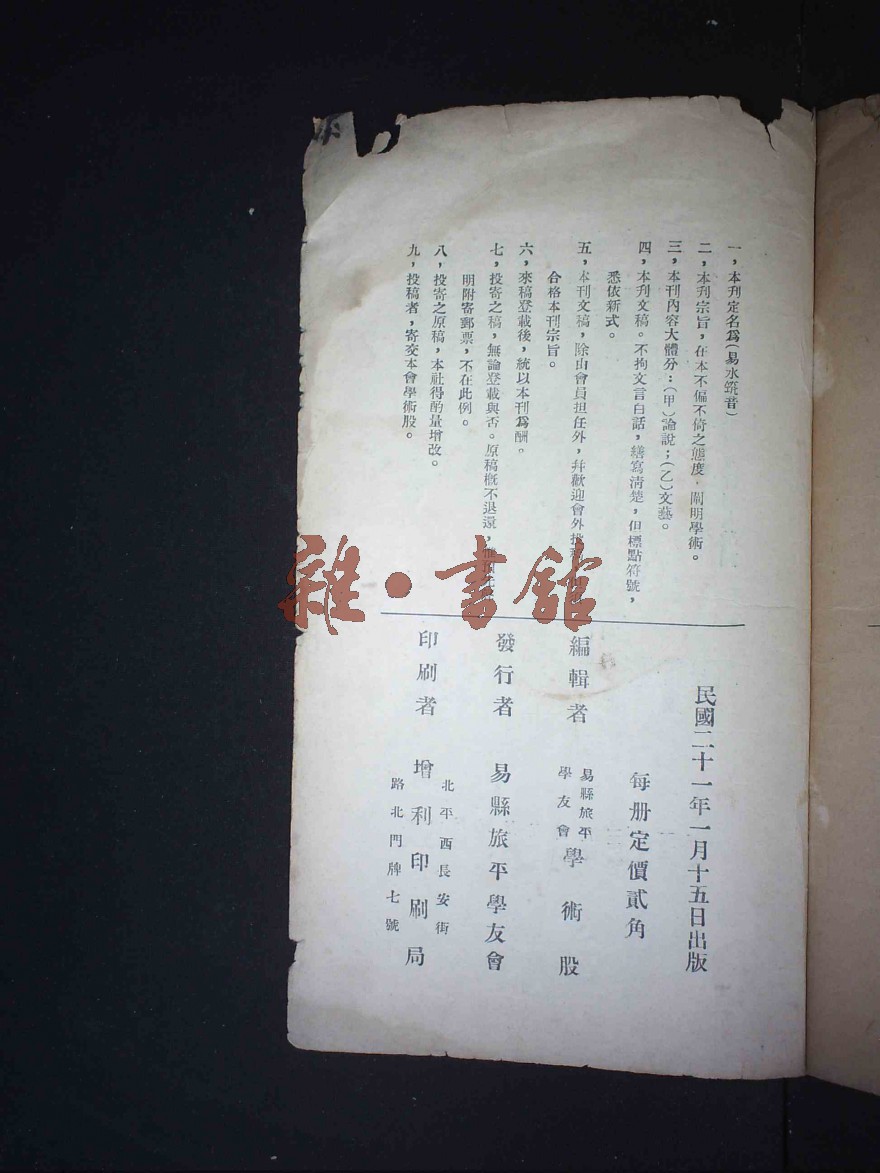 一，本刋定名爲(易水筑音)
二，本刋宗旨，在本不偏不倚之態度，闡明學術。
三，本刋內容大體分：(甲)論說；(乙)文藝。
四，本刋文稿。不拘文言白話，繕寫淸楚，但標點符號，
悉依新式。
五，本刋文稿，除由會員担任外，幷歡迎會外投
合格本刋宗旨。
六，來稿登載後，統以本刋爲酬。
七，投寄之稿，無論登載與否。原稿槪不退還，
明附寄郵票，不在此例。
八，投寄之原稿，本社得酌量增改。
九，投稿者，寄交本會學術股。
民國二十一年一月十五日出版
每册定價貳角
編輯者 易縣旅平學友會 學術股
發行者 易縣旅平學友會
印刷者 增利印刷局
北平西長安街
路北門牌七號
雜·書館